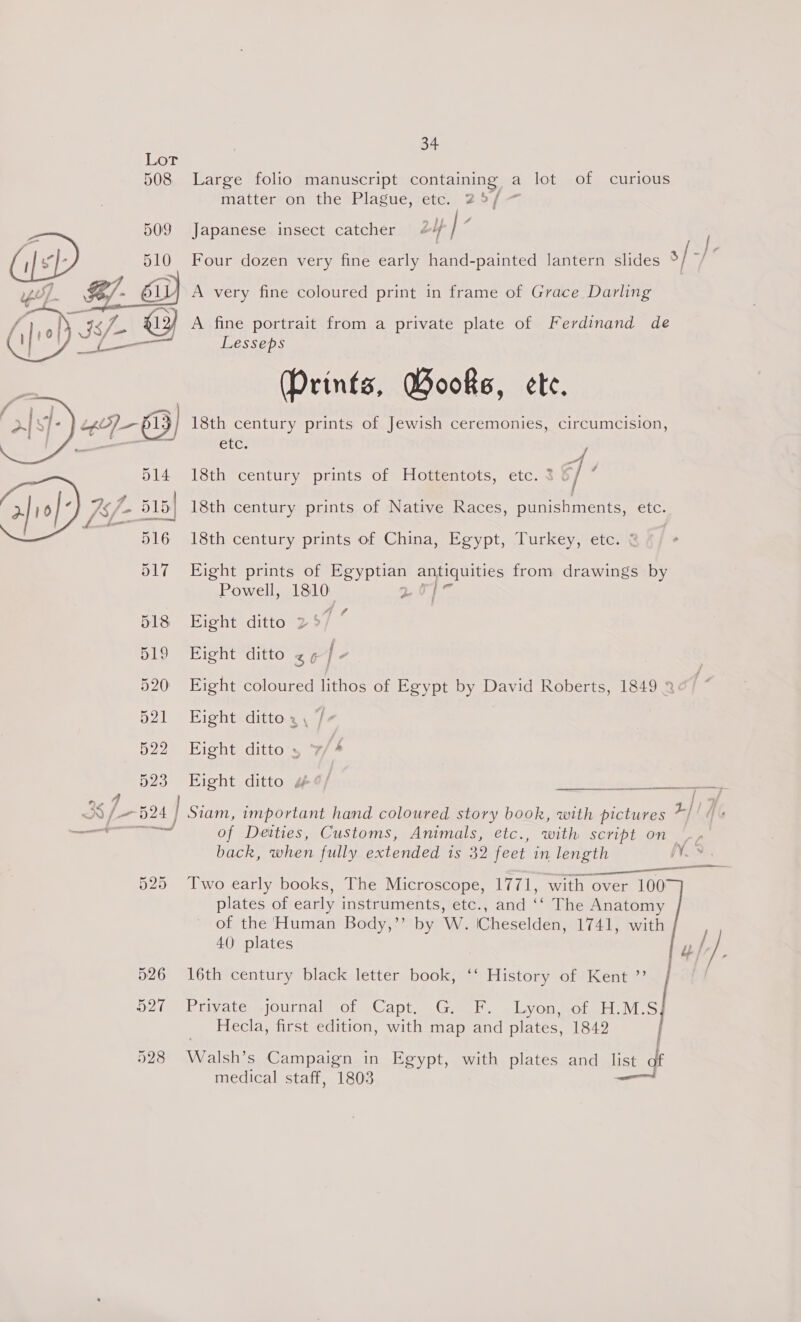 34
Lot
508 Large folio manuscript containing a lot of curious
matter on the Plague, etc. 25/-
509 Japanese insect catcher 24/-
510 Four dozen very fine early hand-painted lantern slides 3/-/-
511 A very fine coloured print in frame of Grace Darling
1/10/- 35/- 512 A fine portrait from a private plate of Ferdinand de
Lesseps
Prints, Books, etc.
2/5/- 513 18th century prints of Jewish ceremonies, circumcision,
etc.
514 18th century prints of Hottentots, etc.
2/10/- 75/- 515 18th century prints of Native Races, punishments, etc.
516 18th century prints of China, Egypt, Turkey, etc.
517 Eight prints of Egyptian antiquities from drawings by
Powell, 1810
518 Eight ditto 25/-
519 Eight ditto
520 Eight coloured lithos of Egypt by David Roberts, 1849
521 Eight ditto
522 Eight ditto
523 Eight ditto
35/- 524 Siam, important hand coloured story book, with pictures
of Deities, Customs, Animals, etc., with script on
back, when fully extended is 32 feet in length
525 Two early books, The Microscope, 1771, with over 100
plates of early instruments, etc., and “ The Anatomy
of the Human Body,” by W. Cheselden, 1741, with
40 plates 4/-/-
526 16th century black letter book, “ History of Kent ”
527 Private journal of Capt. G. F. Lyon, of H.M.S.
Hecla, first edition, with map and plates, 1842
528 Walsh’s Campaign in Egypt, with plates and list of
medical staff, 1803